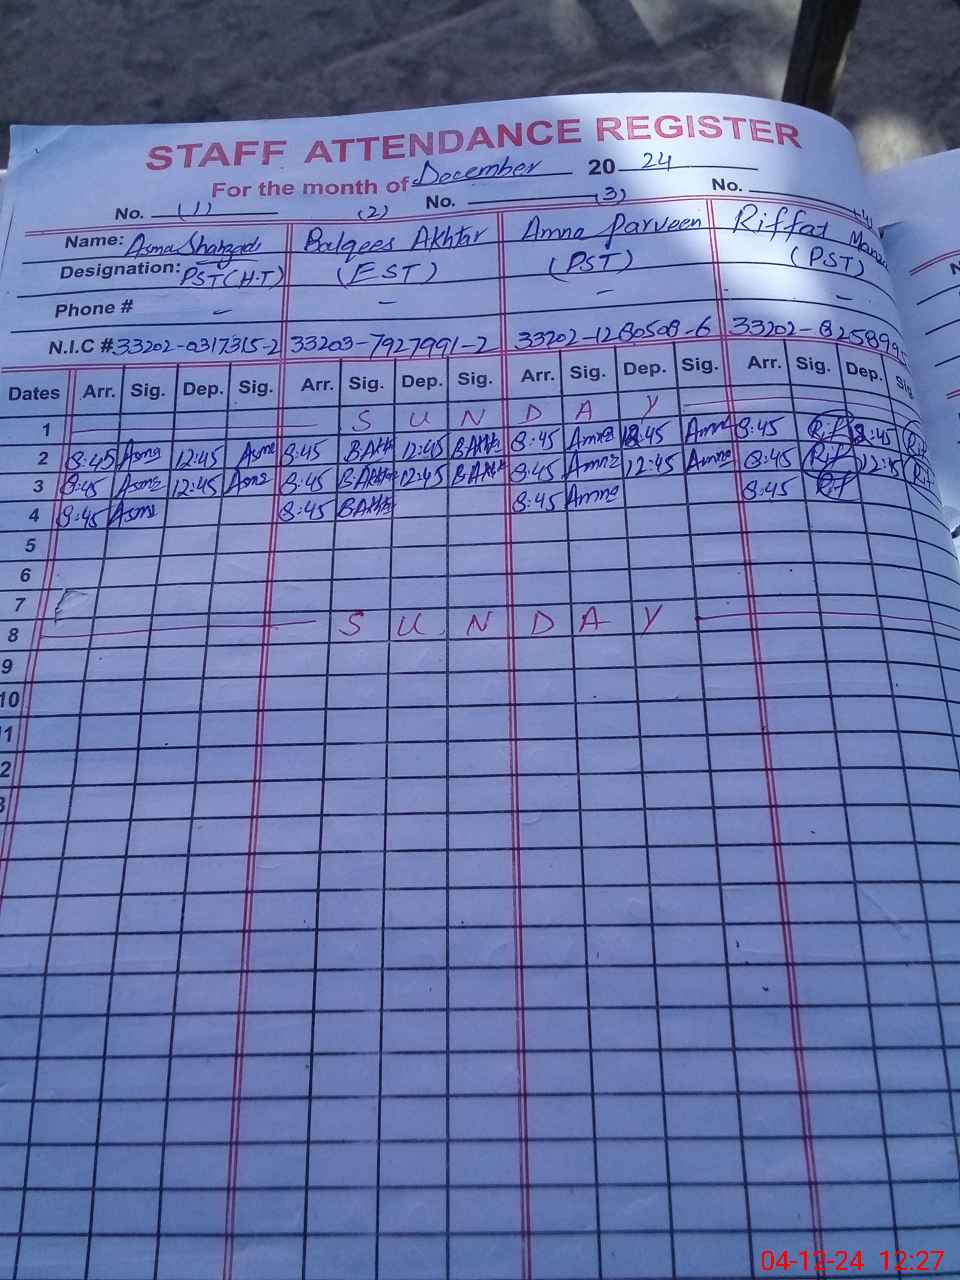 STAFF ATTENDANCE REGISTER
For the month of December 20 24
No. (1) (2) No. (3) No.
Name: Asma Shahzadi Balqees Akhtar Amna Parveen Riffat
Designation: PST (H.T) (EST) (PST) (PST)
Phone # - - - -
N.I.C # 33202-0317315-2 33203-7927991-2 33202-1280508-6 33202-825899
Dates Arr. Sig. Dep. Sig. Arr. Sig. Dep. Sig. Arr. Sig. Dep. Sig. Arr. Sig. Dep. Sig
1 SUNDAY
2 8:45 Asma 12:45 Asma 8:45 BAkht 12:45 BAkht 8:45 Amna 12:45 Amna 8:45 Rif 12:45 Rif
3 8:45 Asma 12:45 Asma 8:45 BAkht 12:45 BAkht 8:45 Amna 12:45 Amna 8:45 Rif 12:45 Rif
4 8:45 Asma 8:45 BAkht 8:45 Amna 8:45 Rif
5
6
7
8 SUNDAY
9
10
1
2
3
04-12-24 12:27